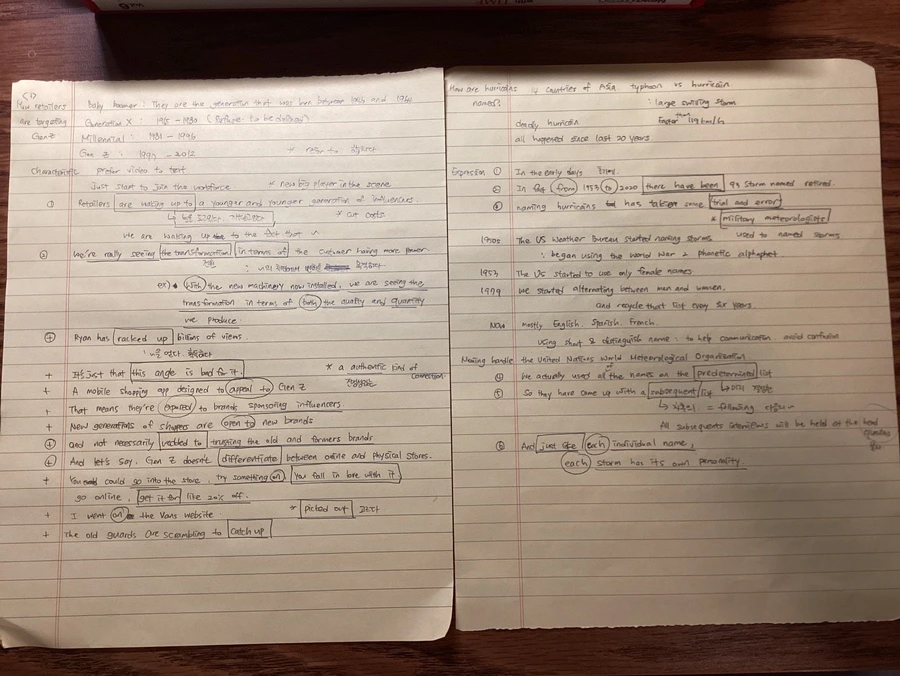 <1>
How retailers are targeting Gen Z
Baby boomer : They are the generation that was born between 1946 and 1964
Generation X : 1965 - 1980
Millennial : 1981 - 1996
Gen Z : 1997 - 2012
Characteristic prefer video to text
Just start to join the workforce * new big player in the scene
① Retailers are waking up to a younger and younger generation of influencers.
* cut costs
we are waking up to the fact that ~
② We're really seeing the transformation in terms of the customer having more power.
ex) With the new machinery now installed, we are seeing the
transformation in terms of both the quality and quantity
we produce.
Ryan has racked up billions of views.
+ It's just that this angle is bad for it. * a authentic kind of connection
+ A mobile shopping app designed to appeal to Gen Z
+ That means they're exposed to brands sponsoring influencers
+ New generations of shoppers are open to new brands
and not necessarily wedded to trusting the old and formers brands
And let's say, Gen Z doesn't differentiate between online and physical stores.
+ You could go into the store, try something on, You fall in love with it
go online, get it for like 20% off.
+ I went on the Vans website * picked out
+ The old guards are scrambling to catch up
How are hurricans names?
14 Countries of Asia typhoon vs hurricain
: large swirling storm
deadly hurricain Faster than 119 km/h
all happened since last 20 years.
Expression ① In the early days
② In fact from 1953 to 2020 there have been 93 storm named retired.
③ naming hurricains has taken some trial and error
* military meteorologists
used to named storms
1940s The US Weather Bureau started naming storms
: began using the World War 2 phonetic alphaphet
1953 The US started to use only female names
1979 We started alternating between men and women.
and recycle that list every six years
Now mostly English. Spanish. French.
Using short & distinguish name : to help communication. avoid confusion
Naming handle the United Nations World Meteorological Organization
④ We actually used all of the names on the predetermined list
⑤ So they have come up with a subsequent list
= following
All subsequents interviews will be held at the head quarters
⑥ And just like each individual name,
each storm has its own personality.